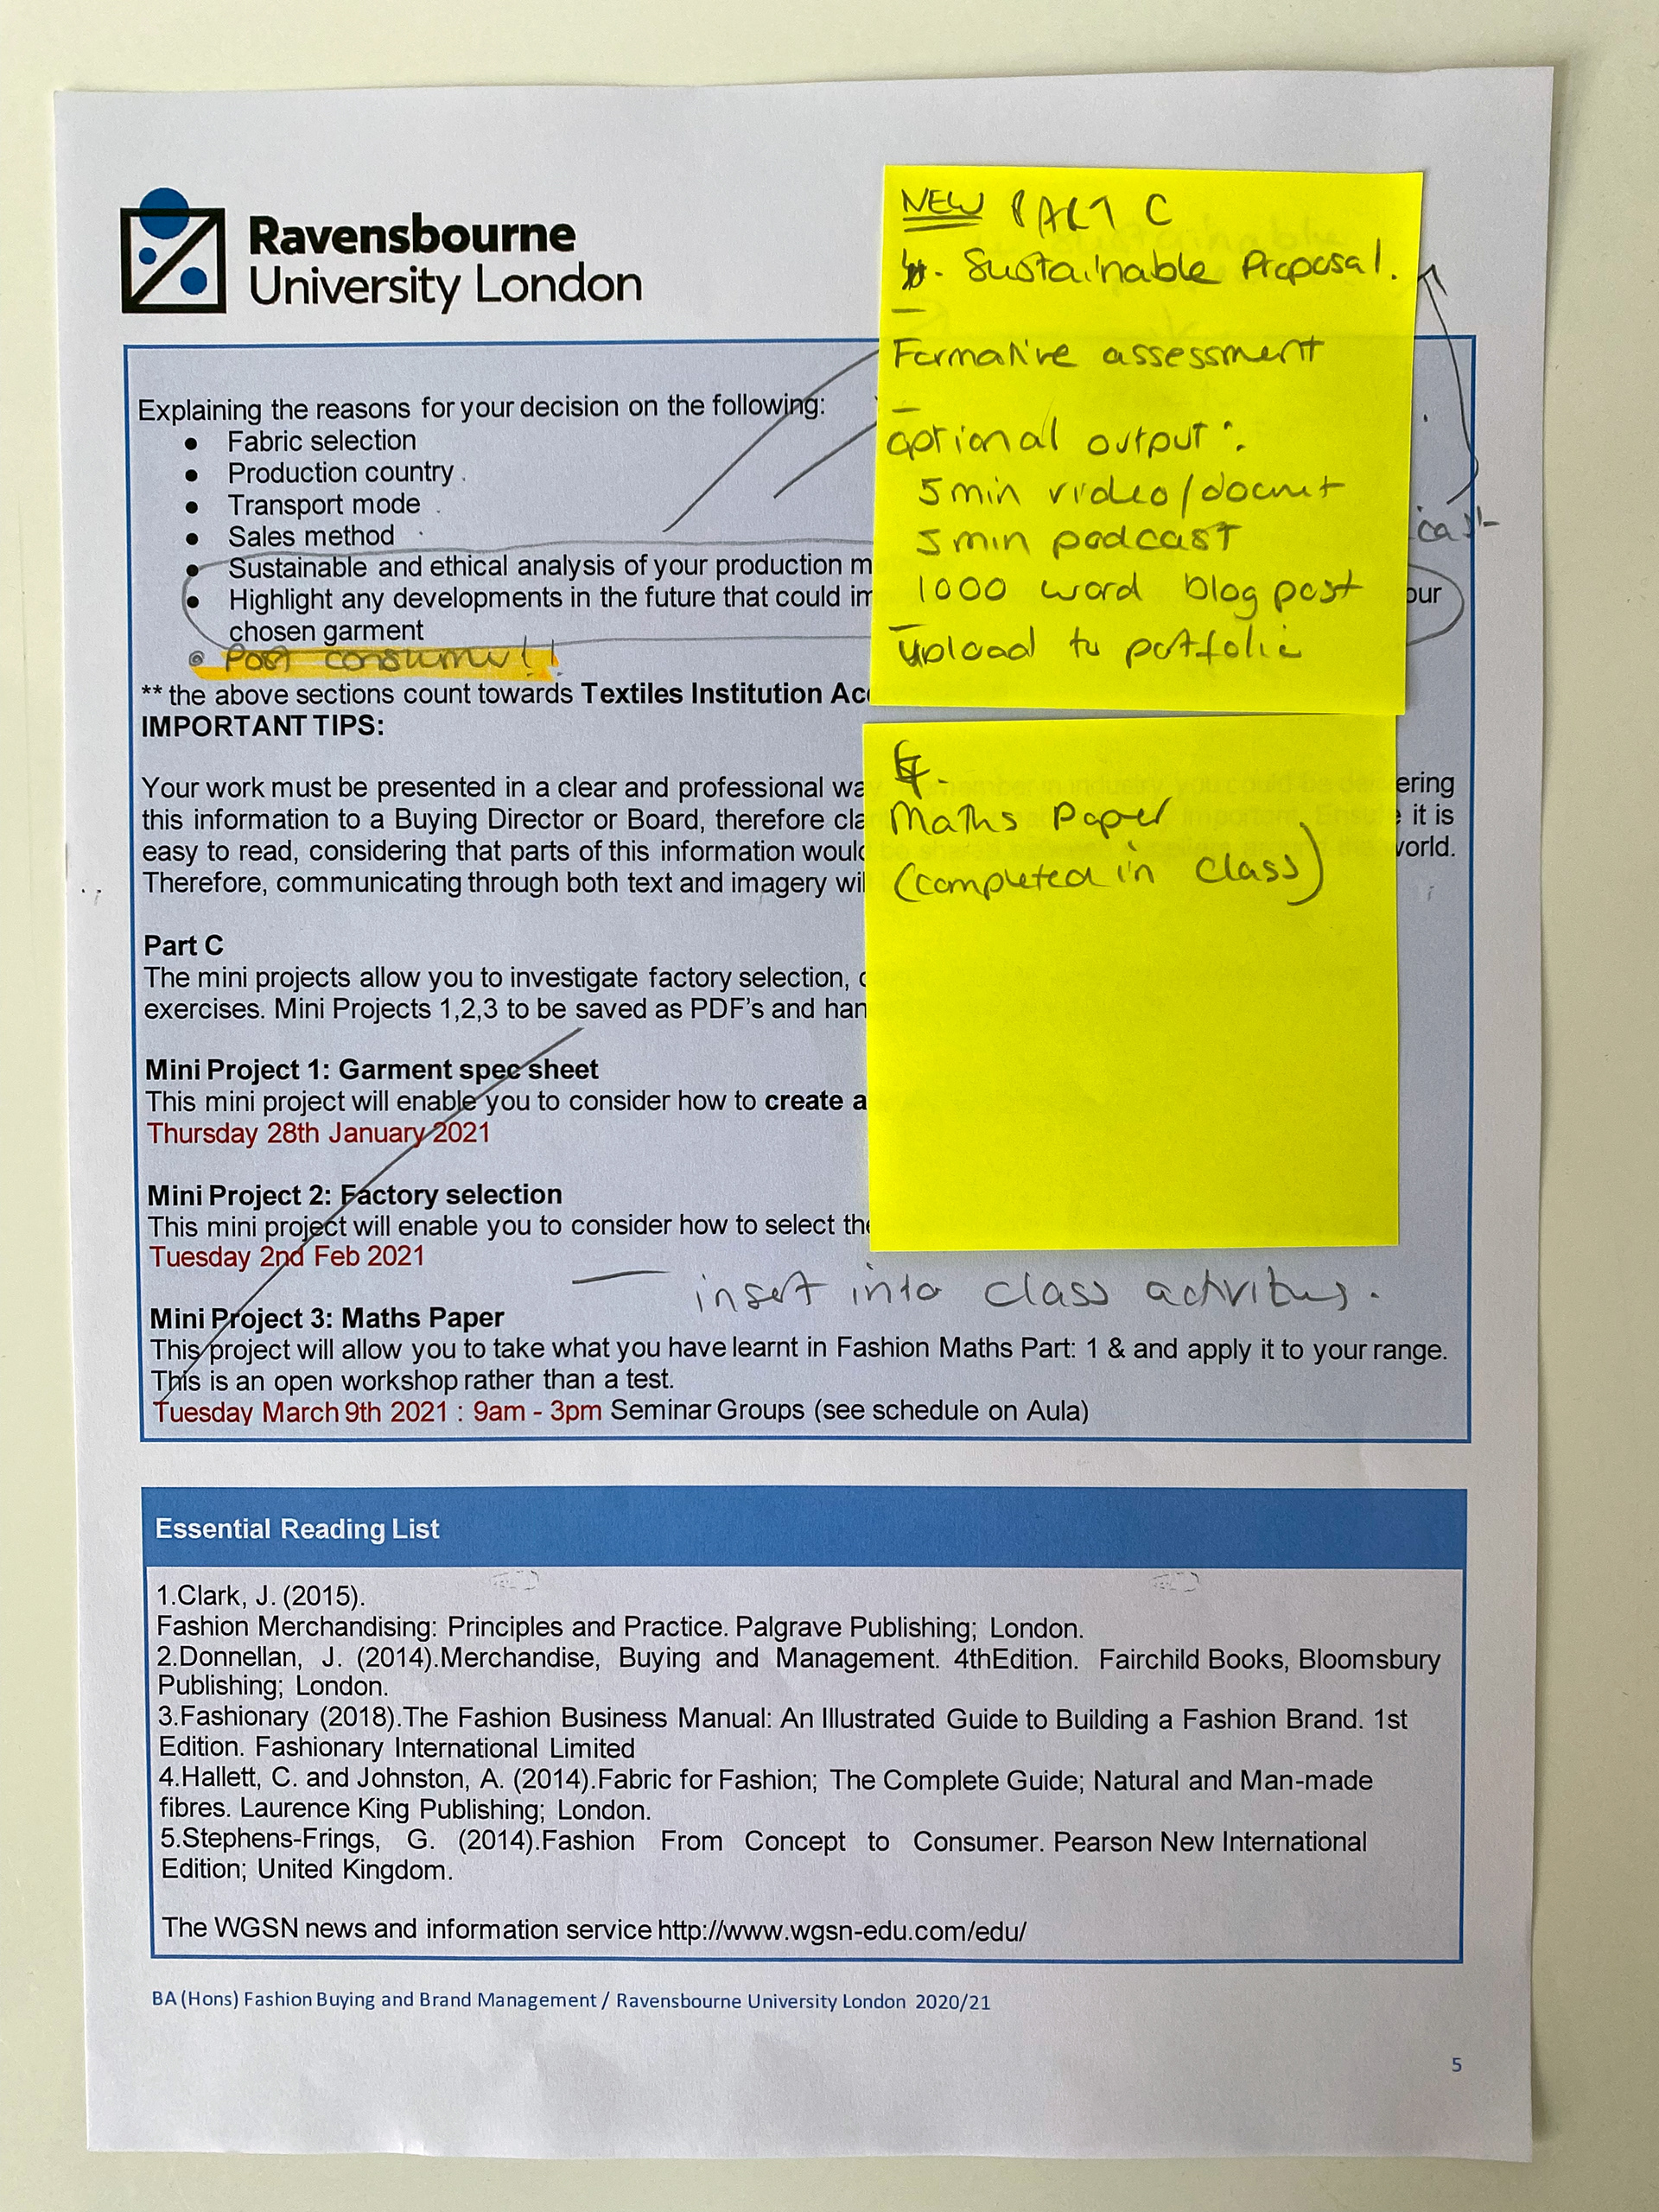 Ravensbourne
University London
NEW PART C
Sustainable Proposal.
Formative assessment
optional output:
5 min video/docmt
5 min podcast
1000 word blog post
upload to portfolio
Explaining the reasons for your decision on the following:
● Fabric selection
● Production country
● Transport mode
● Sales method
● Sustainable and ethical analysis of your production m
● Highlight any developments in the future that could im our
chosen garment
Post consumer!!
** the above sections count towards Textiles Institution Ac
IMPORTANT TIPS:
Maths Paper
(completed in class)
Your work must be presented in a clear and professional wa ering
this information to a Buying Director or Board, therefore cla it is
easy to read, considering that parts of this information would world.
Therefore, communicating through both text and imagery wil
Part C
The mini projects allow you to investigate factory selection,
exercises. Mini Projects 1,2,3 to be saved as PDF's and han
Mini Project 1: Garment spec sheet
This mini project will enable you to consider how to create a
Thursday 28th January 2021
Mini Project 2: Factory selection
This mini project will enable you to consider how to select the
Tuesday 2nd Feb 2021
insert into class activities.
Mini Project 3: Maths Paper
This project will allow you to take what you have learnt in Fashion Maths Part: 1 & and apply it to your range.
This is an open workshop rather than a test.
Tuesday March 9th 2021 : 9am - 3pm Seminar Groups (see schedule on Aula)
Essential Reading List
1.Clark, J. (2015).
Fashion Merchandising: Principles and Practice. Palgrave Publishing; London.
2.Donnellan, J. (2014).Merchandise, Buying and Management. 4thEdition. Fairchild Books, Bloomsbury
Publishing; London.
3.Fashionary (2018).The Fashion Business Manual: An Illustrated Guide to Building a Fashion Brand. 1st
Edition. Fashionary International Limited
4.Hallett, C. and Johnston, A. (2014).Fabric for Fashion; The Complete Guide; Natural and Man-made
fibres. Laurence King Publishing; London.
5.Stephens-Frings, G. (2014).Fashion From Concept to Consumer. Pearson New International
Edition; United Kingdom.
The WGSN news and information service http://www.wgsn-edu.com/edu/
BA (Hons) Fashion Buying and Brand Management / Ravensbourne University London 2020/21
5